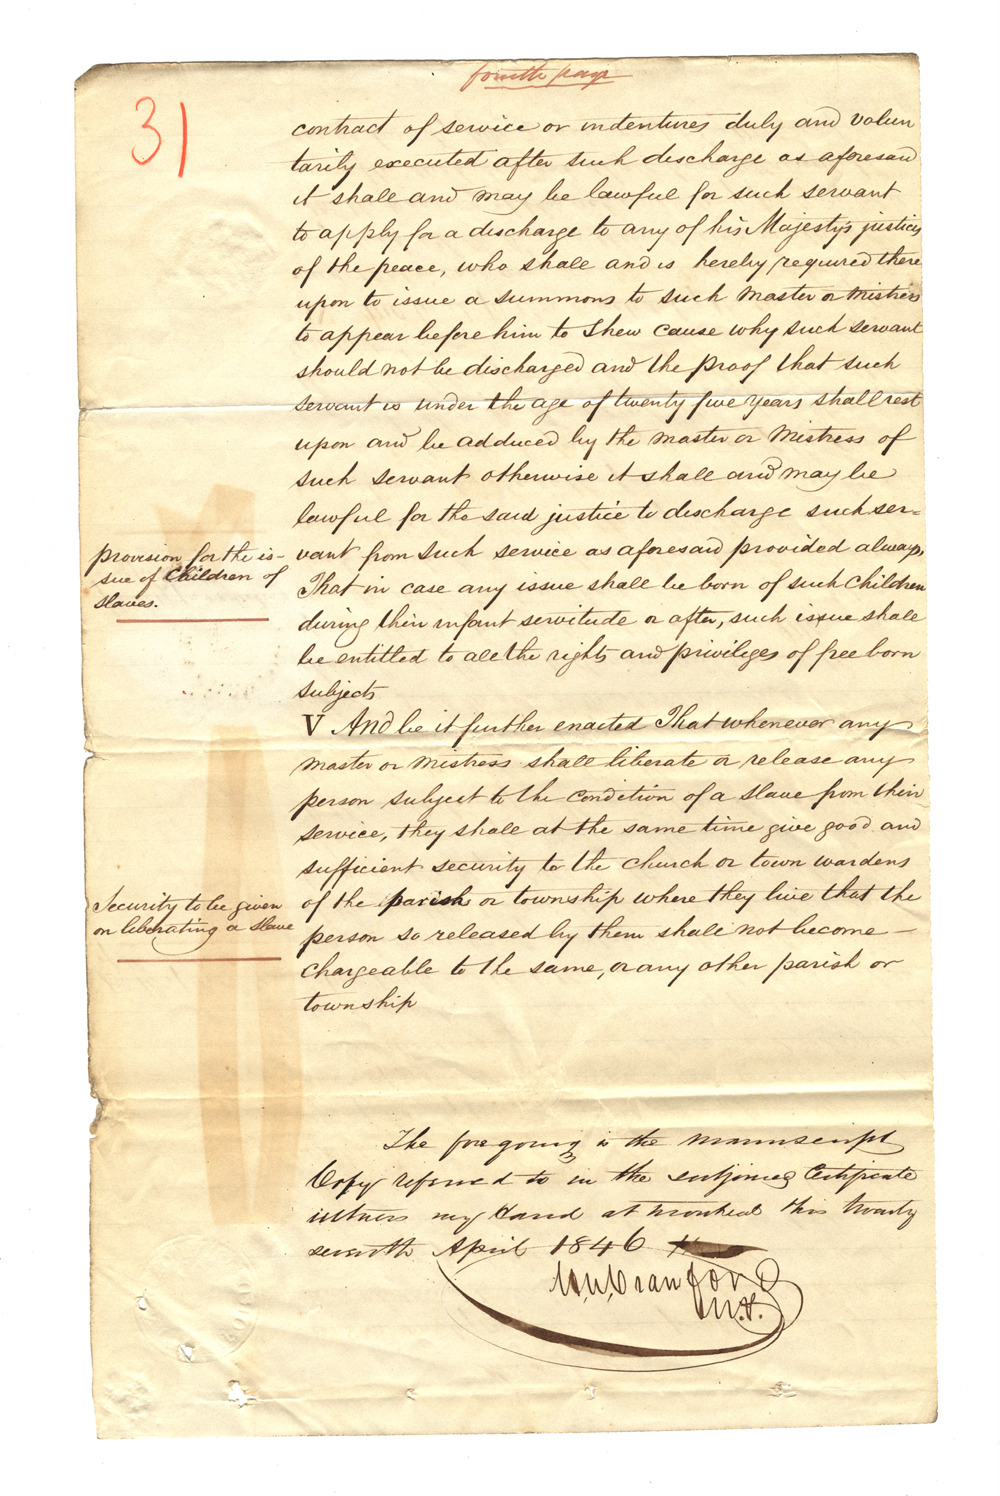 fourth page
31
contract of service or indentures duly and volun
tarily executed after such discharge as aforesaid
it shall and may be lawful for such servant
to apply for a discharge to any of his Majesty's justices
of the peace, who shall and is hereby required there
upon to issue a summons to such Master or Mistress
to appear before him to shew cause why such servant
should not be discharged and the proof that such
servant is under the age of twenty five years shall rest
upon and be adduced by the master or Mistress of
such servant otherwise it shall and may be
lawful for the said justice to discharge such ser=
vant from such service as aforesaid provided always,
That in case any issue shall be born of such Children
during their infant servitude or after, such issue shall
be entitled to all the rights and privileges of free born
subjects
provision for the is-
sue of Children of
slaves.
V And be it further enacted That whenever any
Master or Mistress shall liberate or release any
person subject to the condition of a slave from their
service, they shall at the same time give good and
sufficient security to the church or town wardens
of the parish or township where they live that the
person so released by them shall not become —
chargeable to the same, or any other parish or
township
Security to be given
on liberating a slave
The foregoing is the manuscript
Copy referred to in the subjoined Certificate
witness my Hand at Montreal this twenty
seventh April 1846
Crawford